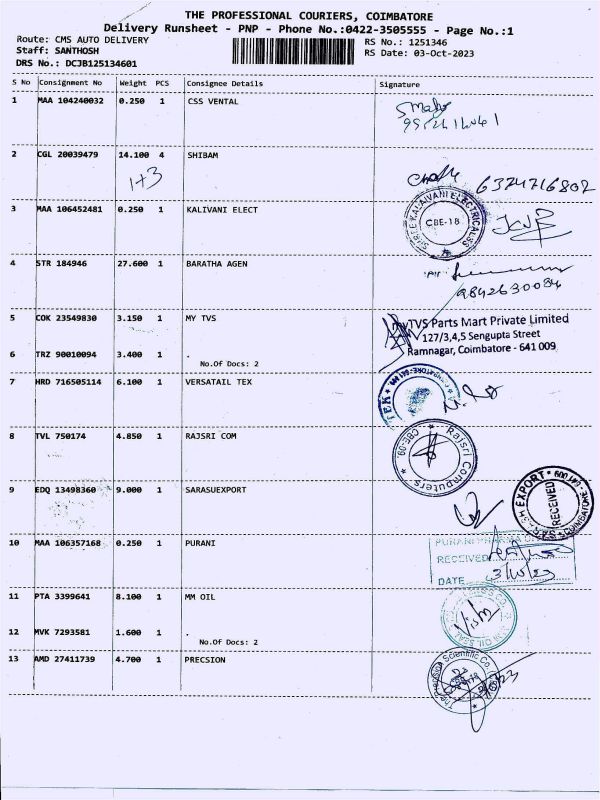 THE PROFESSIONAL COURIERS, COIMBATORE
Delivery Runsheet - PNP - Phone No.:0422-3505555 - Page No.:1
Route: CMS AUTO DELIVERY
RS No.: 1251346
Staff: SANTHOSH
RS Date: 03-Oct-2023
DRS No.: DCJB125134601
S No Consignment No Weight PCS Consignee Details Signature
1 MAA 104240032 0.250 1 CSS VENTAL
2 CGL 20039479 14.100 4 SHIBAM
1+3
6324716802
3 MAA 106452481 0.250 1 KALIVANI ELECT
SHREE KALAIVANI ELECTRICALSS
CBE-18
4 STR 184946 27.600 1 BARATHA AGEN
9842630084
5 COK 23549830 3.150 1 MY TVS
myTVS Parts Mart Private Limited
127/3,4,5 Sengupta Street
Ramnagar, Coimbatore - 641 009
6 TRZ 90010094 3.400 1 .
No.Of Docs: 2
7 HRD 716505114 6.100 1 VERSATAIL TEX
8 TVL 750174 4.850 1 RAJSRI COM
Rajsri Computers
CBE-09
9 EDQ 13498360 9.000 1 SARASUEXPORT
EXPORT
RECEIVED
COIMBATORE
10 MAA 106357168 0.250 1 PURANI
PURANI PHARMA
RECEIVED
DATE
11 PTA 3399641 8.100 1 MM OIL
12 MVK 7293581 1.600 1 .
No.Of Docs: 2
13 AMD 27411739 4.700 1 PRECSION
The Precision Scientific Co.